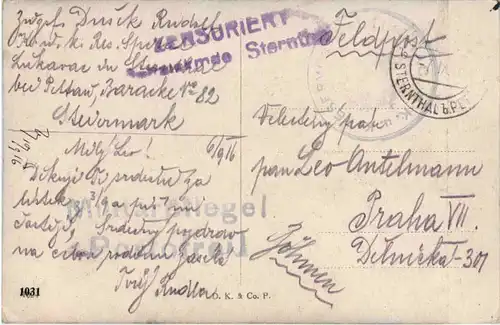 Zugsf. Druck Rudolf
k. k. Res. Spital
Lukavac Sternthal
bei Pettau, Baracke No 82
Steiermark
ZENSURIERT
Sternthal
Feldpost
STERNTHAL b. P
6/9 16
Milý Leo!
6/9 16
Děkuji Ti srdečně za
lístek 3/9 a piš mi
častěji. Srdečný pozdrav
na celou rodinu zasílá
Tvůj Rudla
Velectěný pan
pan Leo Antelmann
Praha VII.
Dělnická 301
Böhmen
Portofrei
1031
O. K. & Co. P.